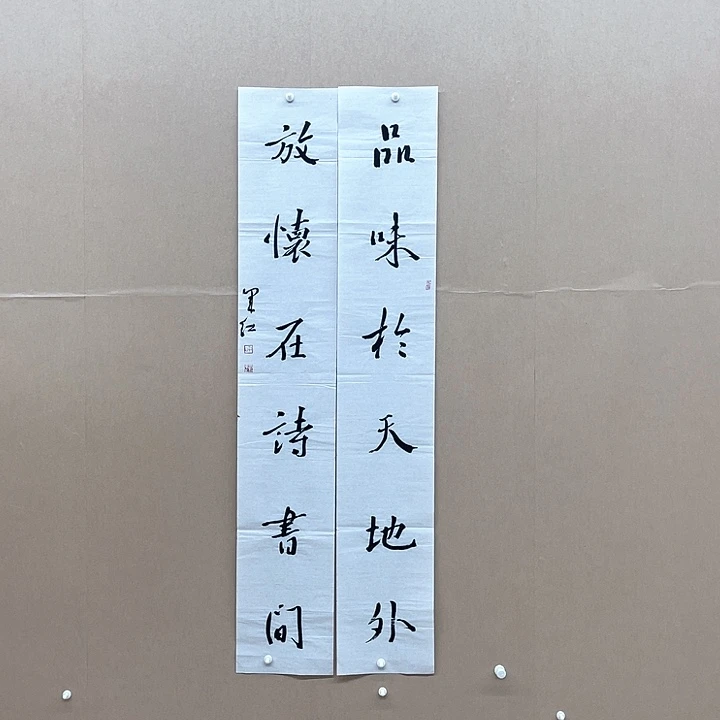 品味於天地外
放懷在詩書間
果红